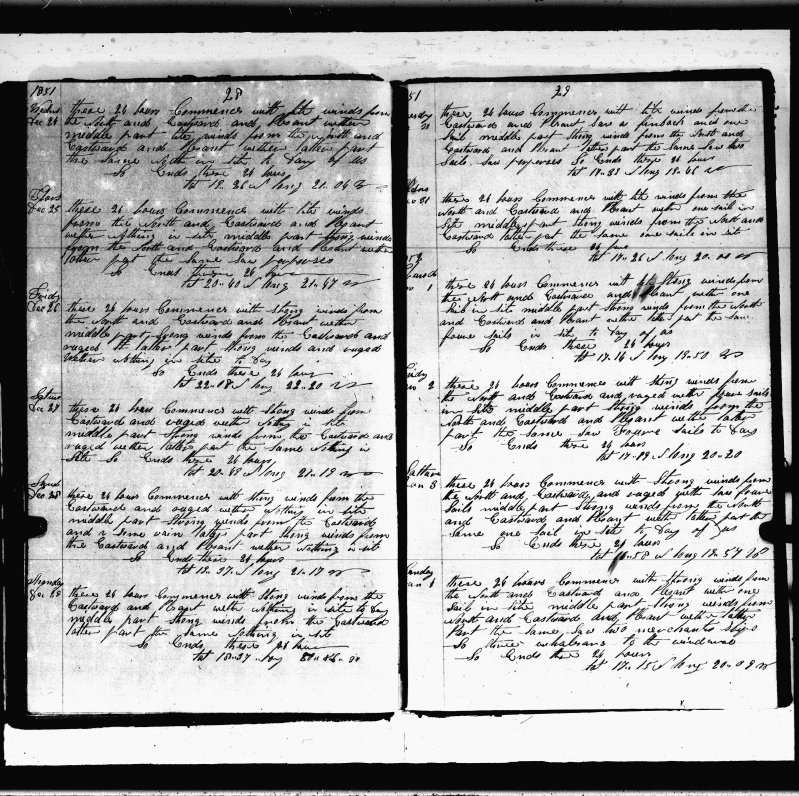 1851
28
Wedns these 24 hours Commences with lite winds from
Dec 24 the North and Eastward and plesant wether
middle part lite winds from the North and
Eastward and plesant wether latter part
the same nothin in site to Day of us
So Ends these 24 hours
lat 19-26 S long 21-06
Thurs
Dec 25 these 24 hours Commences with lite winds
from the North and Eastward and plesant
wether nothing in site middle part strong winds
from the North and Eastward and plesant wether
latter part the same saw porpoises
So Ends these 24 hours
lat 20-40 S long 21-47
Friday
Dec 26 these 24 hours Commences with strong winds from
the North and Eastward and plesant wether
middle part strong winds from the Eastward and
ruged latter part strong winds and ruged
wether nothing in site to Day
So Ends these 24 hours
lat 22-08 S long 22-20
Satur
Dec 27 these 24 hours Commences with strong winds from
Eastward and ruged wether nothing in site
middle part strong winds from the Eastward and
ruged wether latter part the same nothing in
site So Ends these 24 hours
lat 20-43 S long 21-19
Sund
Dec 28 these 24 hours Commences with strong winds from the
Eastward and ruged wether nothing in site
middle part strong winds from the Eastward
and some rain latter part strong winds from
the Eastward and plesant wether nothing in sit
So Ends these 24 hours
lat 19-37 S long 21-17
Monday
Dec 29 these 24 hours Commences with strong winds from the
Eastward and plesant wether nothing in site to Day
middle part strong winds from the Eastward
latter part the same nothing in site
So Ends these 24 hours
lat 18-37 long
51
29
these 24 hours Commences with lite winds from the
Eastward and plesant saw a finback and one
sail middle part strong winds from the North and
Eastward and plesant latter part the same saw two
sails saw porpoises So Ends these 24 hours
lat 17-33 S long 19-46
31 these 24 hours Commences with lite winds from the
North and Eastward and plesant with one sail in
site middle part strong winds from the North and
Eastward latter part the same one sail in site
So Ends these 24 hours
lat 17-26 S long 20-01
1 these 24 hours Commences with strong winds from
the North and Eastward and plesant with one
sail in site middle part strong winds from the North
and Eastward and plesant wether latter part the same
foure sails in site to Day of us
So Ends these 24 hours
lat 17-16 S long 19-50
2 these 24 hours Commences with strong winds from
the North and Eastward and ruged with foure sails
in site middle part strong winds from the
North and Eastward and plesant wether latter
part the same saw foure sails to Day
So Ends these 24 hours
lat 17-09 S long 20-20
3 these 24 hours Commences with strong winds from
the North and Eastward and ruged with foure
sails middle part strong winds from the North
and Eastward and plesant wether latter part the
same one sail in site to Day of us
So Ends these 24 hours
58 S long 19-57
Sunday
these 24 hours Commences with strong winds from
the North and Eastward and plesant with one
sail in site middle part strong winds from
North and Eastward and plesant wether latter
part the same saw two merchants ships
So three whalemans to the windward
So Ends these 24 hours
lat 17-15 S long 20-09